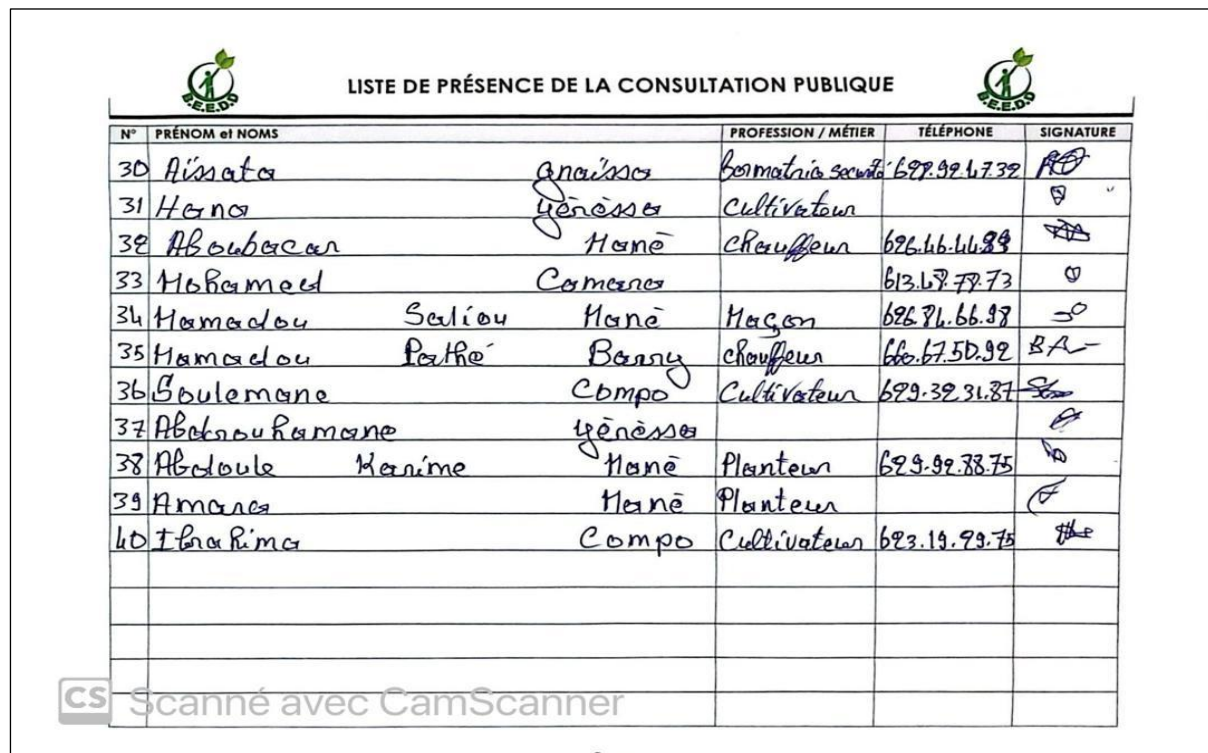 B.E.E.D.D
LISTE DE PRÉSENCE DE LA CONSULTATION PUBLIQUE
B.E.E.D.D
N° PRÉNOM et NOMS PROFESSION / MÉTIER TÉLÉPHONE SIGNATURE
30 Aïssata
31 Hana Yénèssa Cultivateur
32 Aboubacar Manè Chauffeur
33 Mohamed Camara
34 Mamadou Saliou Manè Maçon
35 Mamadou Pathé Barry chauffeur 660.67.50.92 BA
36 Soulemane Compo Cultivateur 629.32 31.87
37 Yénèssa
38 Abdoule Karime Manè Planteur 629.92.88.75
39 Amara Manè Planteur
40 Ibrahima Compo Cultivateur 623.19.29.75
CS Scanné avec CamScanner